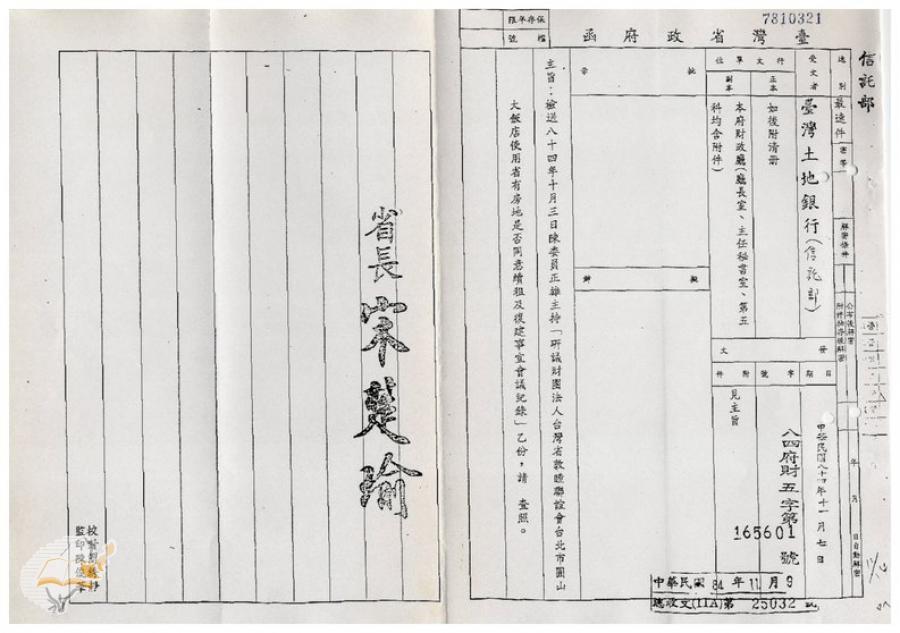 7810321
保存年限
檔號
臺灣省政府函
信託部
速別
最速件
密等
解密條件
公布後解密
附件抽存後解密
年 月 日自動解密
受文者
臺灣土地銀行(信託部)
行文單位
正本
如後附清冊
副本
本府財政廳(廳長室、主任秘書室、第五
科均含附件)
發文
日期
中華民國八十四年十一月七日
字號
八四府財五字第
165601
號
附件
見主旨
批示
擬辦
中華民國 84 年 11 月 9
總收文(IIA)第 25032 號
主旨:檢送八十四年十月三日陳委員正雄主持「研議財團法人台灣省敦睦聯誼會台北市圓山
大飯店使用省有房地是否同意續租及復建事宜會議紀錄」乙份,請 查照。
省長 宋楚瑜
校對
監印陳